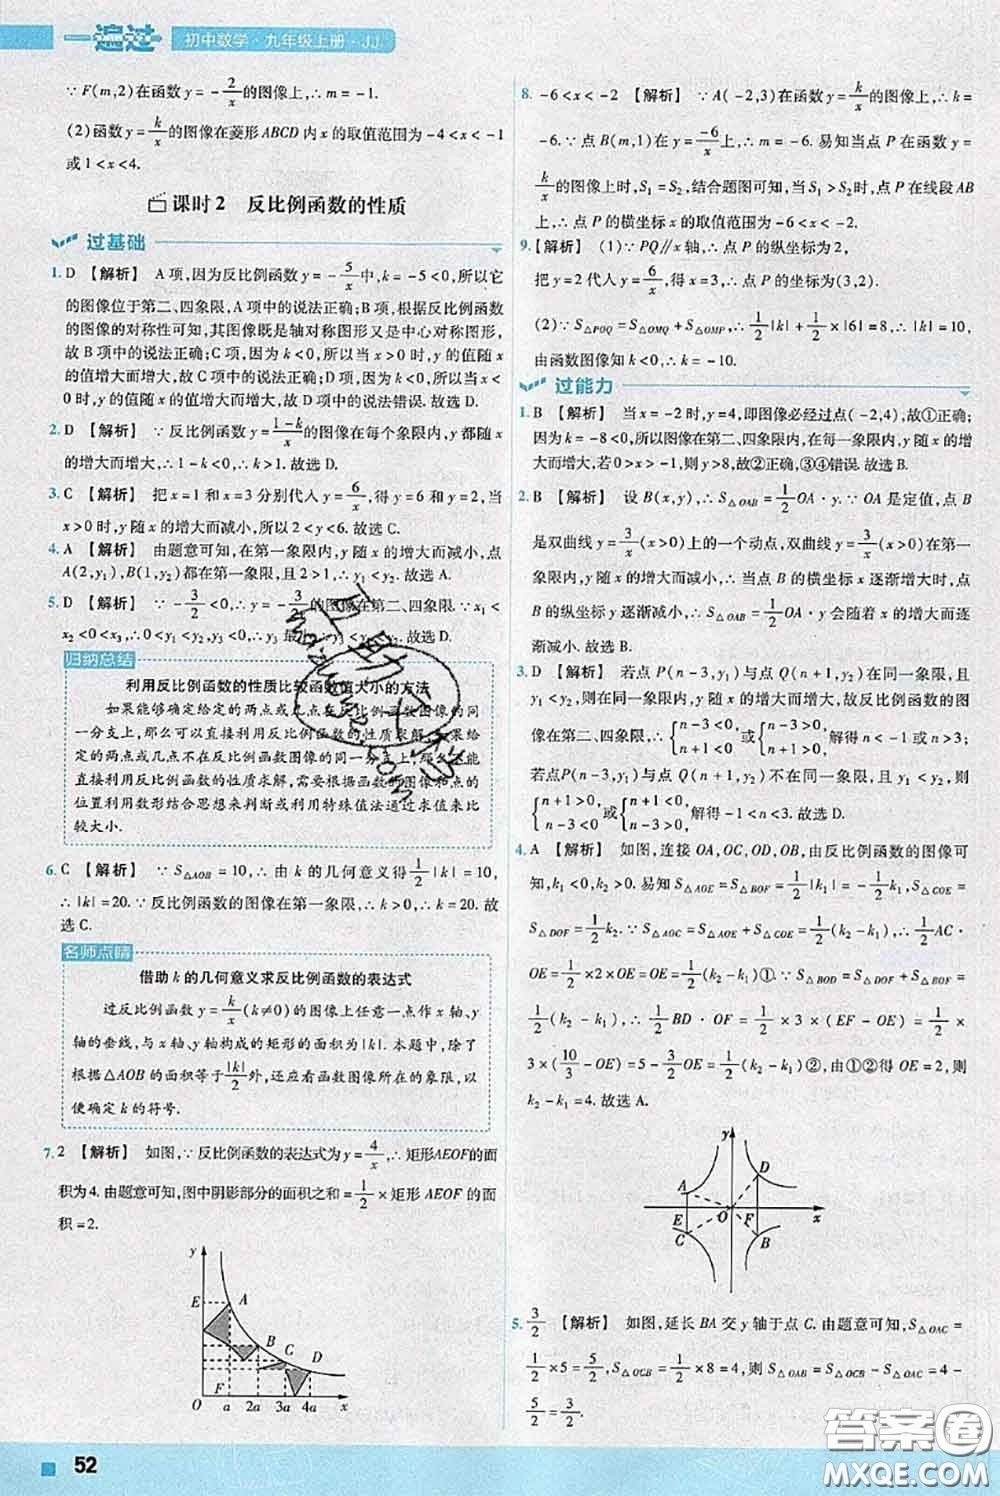 一遍过 初中数学·九年级上册·JJ
∵F(m,2)在函数y=-2/x的图像上,∴m=-1.
(2)函数y=k/x的图像在菱形ABCD内x的取值范围为-4<x<-1
或1<x<4.
课时2 反比例函数的性质
过基础
1. D 【解析】 A项,因为反比例函数y=-5/x中,k=-5<0,所以它
的图像位于第二、四象限,A项中的说法正确;B项,根据反比例函数
的图像的对称性可知,其图像既是轴对称图形又是中心对称图形,
故B项中的说法正确;C项,因为k<0,所以当x>0时,y的值随x
的增大而增大,故C项中的说法正确;D项,因为k<0,所以当x<
0时,y的值随x的值增大而增大,故D项中的说法错误.故选D.
2. D 【解析】 ∵反比例函数y=(1-k)/x的图像在每个象限内,y都随x
的增大而增大,∴1-k<0,∴k>1.故选D.
3. C 【解析】 把x=1和x=3分别代入y=6/x,得y=6和y=2,当
x>0时,y随x的增大而减小,所以2<y<6.故选C.
4. A 【解析】 由题意可知,在第一象限内,y随x的增大而减小,点
A(2,y₁),B(1,y₂)都在第一象限,且2>1,∴y₁<y₂.故选A.
5. D 【解析】 ∵-3/2<0,∴y=-3/2的图像在第二、四象限.∵x₁<
x₂<0<x₃,∴0<y₁<y₂,y₃<0,∴y₃最小 ∴y₃<y₁<y₂.故选D.
归纳总结
利用反比例函数的性质比较函数值大小的方法
如果能够确定给定的两点或几点在反比例函数图像的同
一分支上,那么可以直接利用反比例函数的性质求解.如果给
定的两点或几点不在反比例函数图像的同一分支上,那么不能
直接利用反比例函数的性质求解,需要根据函数的图像和点的
位置利用数形结合思想来判断或利用特殊值法通过求值来比
较大小.
6. C 【解析】 ∵S△AOB=10,∴由k的几何意义得1/2|k|=10,
∴|k|=20.∵反比例函数的图像在第一象限,∴k>0,∴k=20.故
选C.
名师点睛
借助k的几何意义求反比例函数的表达式
过反比例函数y=k/x(k≠0)的图像上任意一点作x轴、y
轴的垂线,与x轴、y轴构成的矩形的面积为|k|.本题中,除了
根据△AOB的面积等于|k|/2外,还应看函数图像所在的象限,以
便确定k的符号.
7. 2 【解析】 如图,∵反比例函数的表达式为y=4/x,∴矩形AEOF的面
积为4.由题意可知,图中阴影部分的面积之和=1/2×矩形AEOF的面
积=2.
y E A B C D O F a 2a 3a 4a x
8. -6<x<-2 【解析】 ∵A(-2,3)在函数y=k/x的图像上,∴k=
-6.∵点B(m,1)在y=-6/x上,∴m=-6.易知当点P在函数y=
k/x的图像上时,S₁=S₂,结合题图可知,当S₁>S₂时,点P在线段AB
上,∴点P的横坐标x的取值范围为-6<x<-2.
9. 【解析】 (1)∵PQ∥x轴,∴点P的纵坐标为2,
把y=2代入y=6/x,得x=3,∴点P的坐标为(3,2).
(2)∵S△POQ=S△OMQ+S△OMP,∴1/2|k|+1/2×|6|=8,∴|k|=10,
由函数图像知k<0,∴k=-10.
过能力
1. B 【解析】 当x=-2时,y=4,即图像必经过点(-2,4),故①正确;
因为k=-8<0,所以图像在第二、四象限内,在每一象限内,y随x的增
大而增大,若0>x>-1,则y>8,故②正确,③④错误.故选B.
2. B 【解析】 设B(x,y),∴S△OAB=1/2OA·y.∵OA是定值,点B
是双曲线y=3/x(x>0)上的一个动点,双曲线y=3/x(x>0)在第一
象限内y随x的增大而减小,∴当点B的横坐标x逐渐增大时,点
B的纵坐标y逐渐减小,∴S△OAB=1/2OA·y会随着x的增大而逐
渐减小.故选B.
3. D 【解析】 若点P(n-3,y₁)与点Q(n+1,y₂)在同一象限,且
y₁<y₂,则在同一象限内,y随x的增大而增大,故反比例函数的图
像在第二、四象限,∴{n-3<0, n+1<0 或{n-3>0, n+1>0, 解得n<-1或n>3;
若点P(n-3,y₁)与点Q(n+1,y₂)不在同一象限,且y₁<y₂,则
{n+1>0, n-3<0 或{n+1<0, n-3>0, 解得-1<n<3.故选D.
4. A 【解析】 如图,连接OA,OC,OD,OB,由反比例函数的图像可
知,k₁<0,k₂>0.易知S△AOE=S△BOF=1/2|k₁|=-1/2k₁,S△COE=
S△DOF=1/2k₂.∵S△AOC=S△AOE+S△COE=1/2(k₂-k₁),∴1/2AC·
OE=1/2×2×OE=1/2(k₂-k₁)①.∵S△BOD=S△DOF+S△BOF=
1/2(k₂-k₁),∴1/2BD·OF=1/2×3×(EF-OE)=1/2×
3×(10/3-OE)=5-3/2OE=1/2(k₂-k₁)②,由①②得OE=2,则
k₂-k₁=4.故选A.
y A D E O F x C B
5. 3/2 【解析】 如图,延长BA交y轴于点C.由题意可知,S△OAC=
1/2×5=5/2,S△OCB=1/2×8=4,则S△OAB=S△OCB-S△OAC=4-
5/2=3/2.
52
答案圈
MXQE.COM